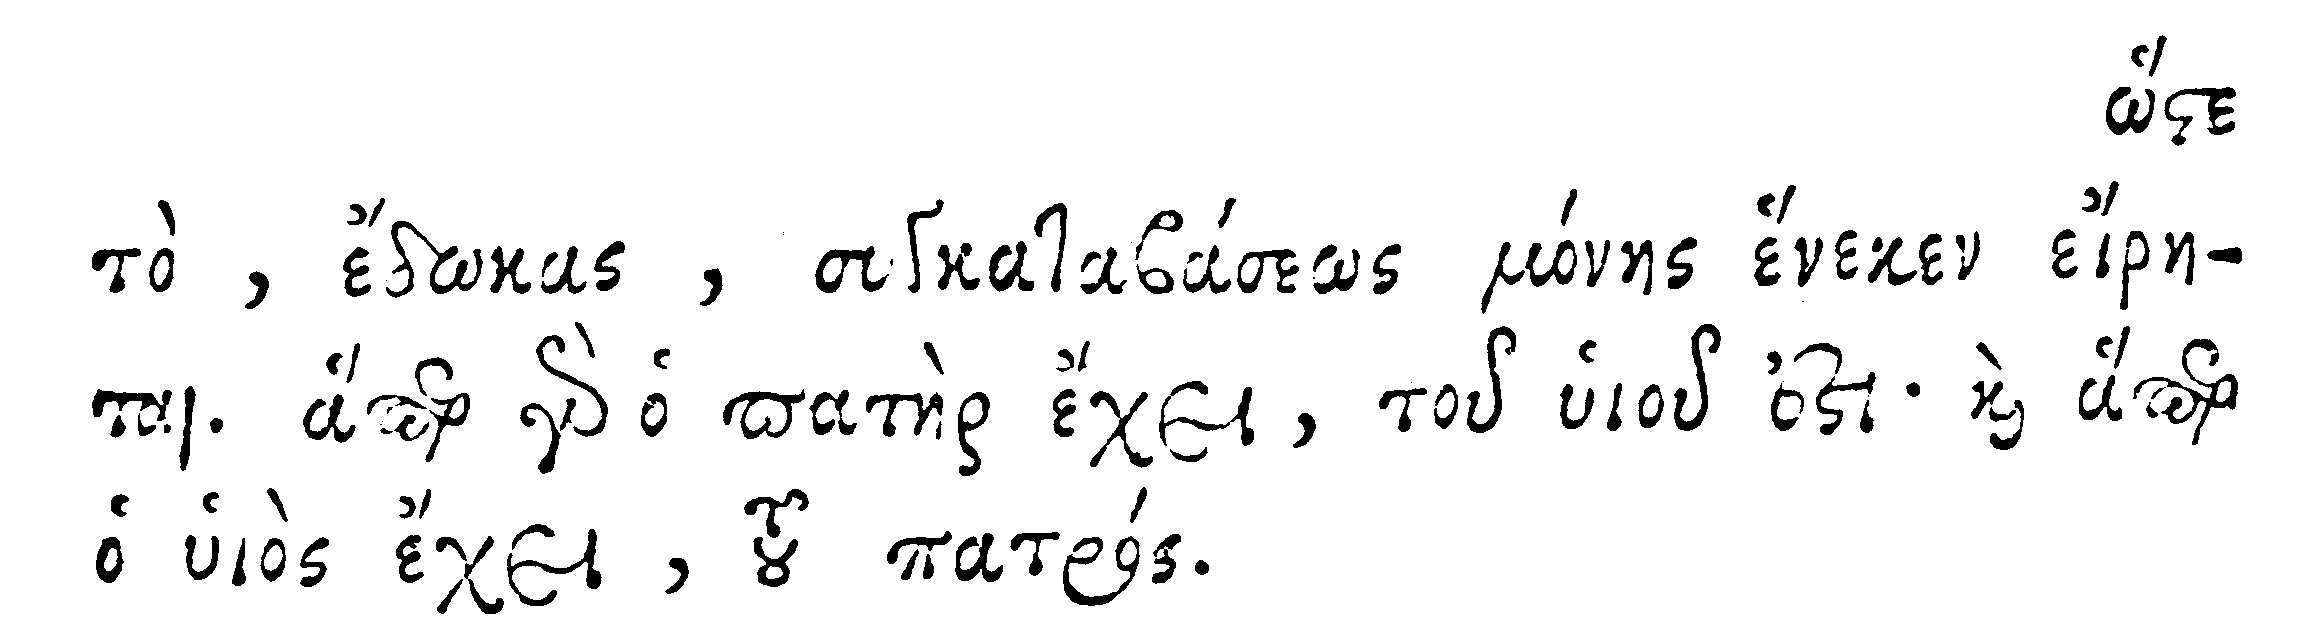 ὥστε
τὸ, ἔδωκας, συγκαταβάσεως μόνης ἕνεκεν εἴρη-
ται. ἅπερ γὰρ ὁ πατὴρ ἔχει, τοῦ υἱοῦ ὅτι· καὶ ἅπερ
ὁ υἱὸς ἔχει, τοῦ πατρός.